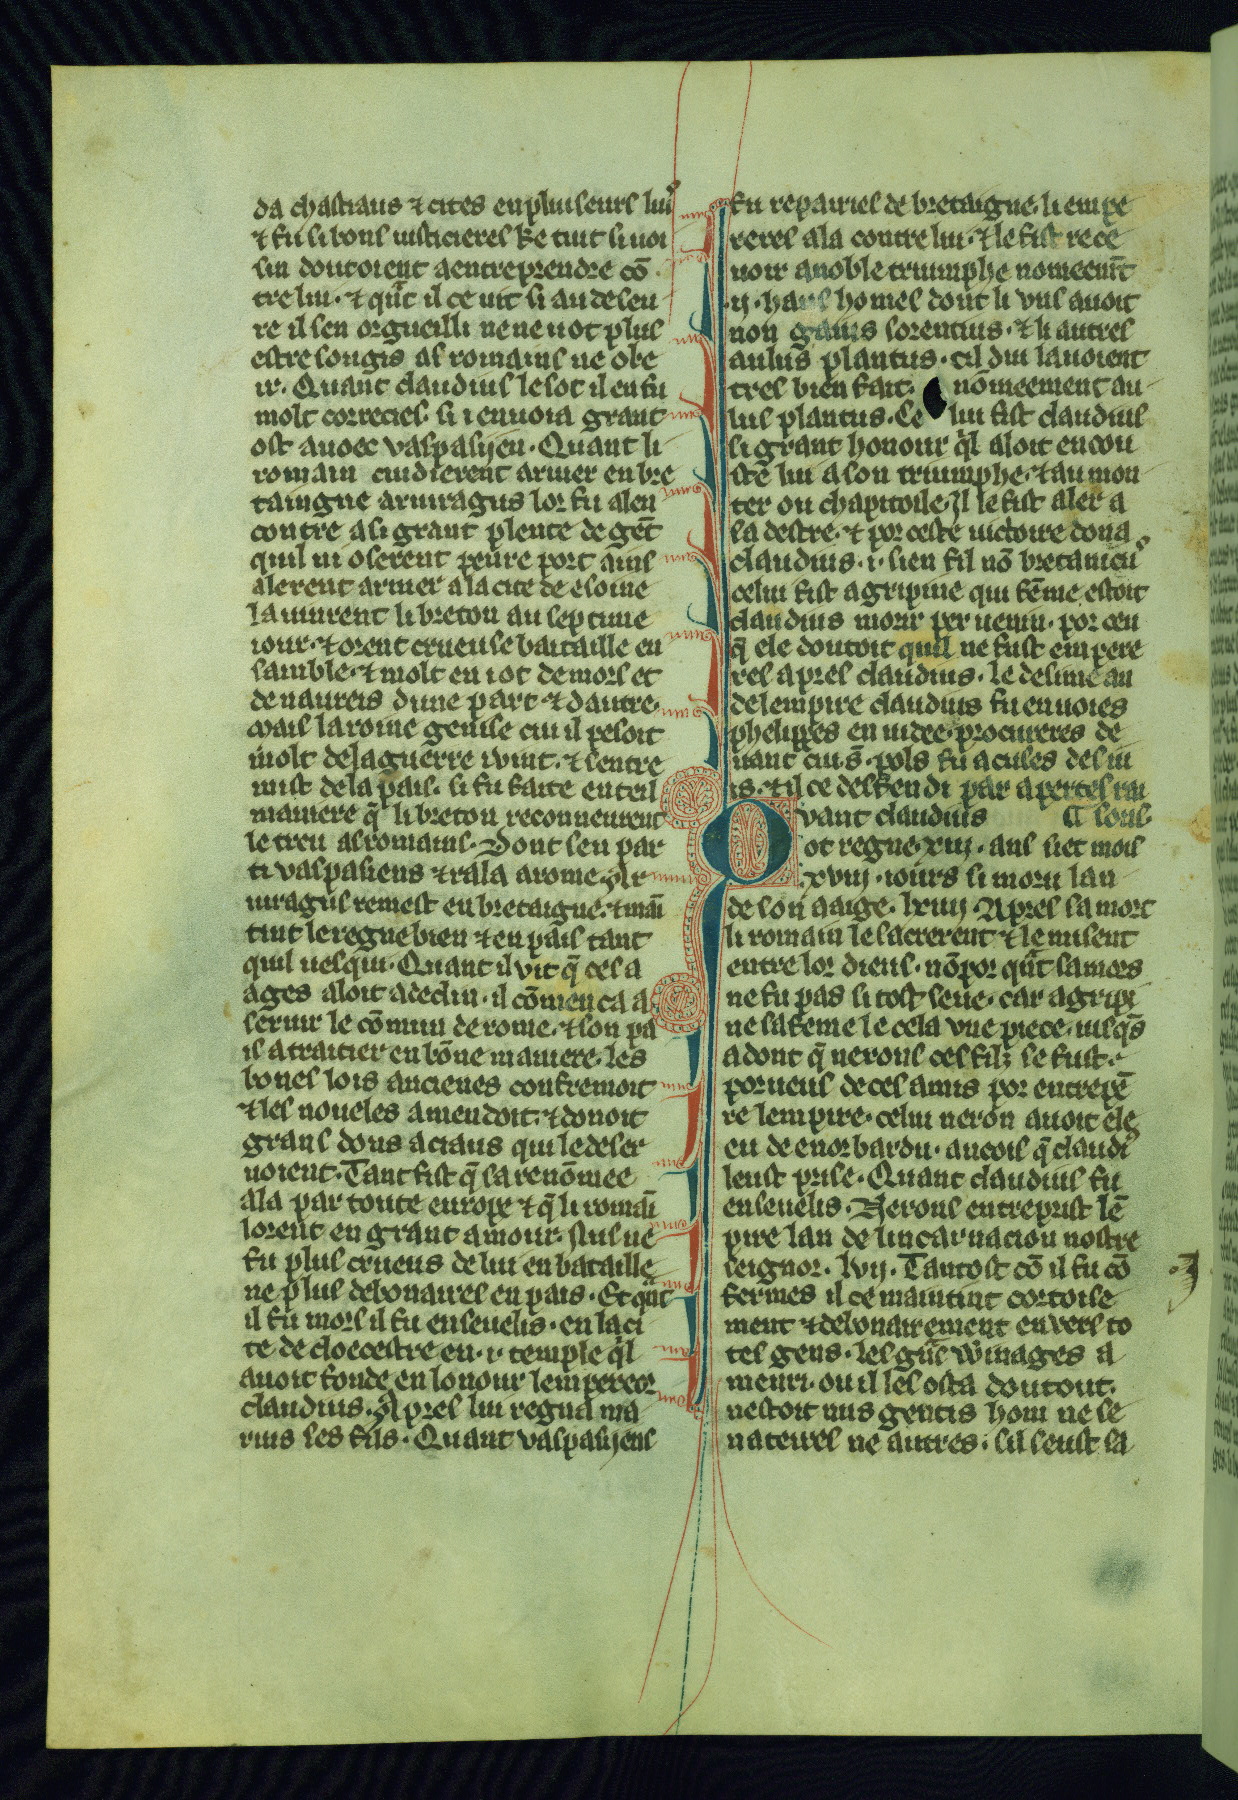 da chastiaus ⁊ cites en pluiseurs lius
⁊ fu si bons iusticieres ke tuit si uoi
sin doutoient a entreprendre cō
tre lui· ⁊ qn̄t il ce uit si au deseu
re il sen orgueilli ne ne uot plus
estre sougis as romains ne obe
ir· Quant claudius le sot il en fu
molt correcies· si i enuoia grant
ost auoec vaspasijen· Quant li
romain cuidierent ariuer en bre
taingne aruiragus lor fu alen
contre a si grant plente de gēt
quil ni oserent penre port ains
alerent ariuer a la cite de esoine
la uinrent li breton au septime
iour· ⁊ orent crueuse bataille en
samble· ⁊ molt en i ot de mors et
de naureis dune part ⁊ dautre·
mais la roine genise cui il pesoit
molt de la guerre i vint· ⁊ sentre
mist de la pais· si fu faite en teil
maniere q̄ li breton reconneurent
le treu as romains· Dont sen par
ti vaspasiens ⁊ rala a rome· Ar
uiragus remest en bretaigne· ⁊ mai
tint le regne bien ⁊ en pais tant
quil uesqui· Quant il vit q̄ ces a
ages aloit a declin· il cōmenca a
seruir le cōmun de rome· ⁊ son pa
is a traitier en bōne maniere· les
bones lois ancienes confremoit
⁊ les noueles amendoit· ⁊ donoit
grans dons a ciaus qui le deser
uoient· Tant fist q̄ sa renōmee
ala par toute europe ⁊ q̄ li romai
lorent en grant amour· nus ne
fu plus crueus de lui en bataille
ne plus debonaires en pais· Et qn̄t
il fu mors il fu enseuelis· en la ci
te de cloecestre en· i· temple ql
auoit fonde en lonour lempereor
claudius· Apres lui regna ma
rius ses fils· Quant vaspasijens
fu repairies de bretaigne· li empe
reres ala contre lui· ⁊ le fist rece
uoir a noble triumphe nomeemt̄
·ij· haus homes dont li vns auoit
non gauis sorentius· ⁊ li autres
aulus plantus· cil dui lauoient
tres bien fait· nōmeement au
lus plantus· Ce lui fist claudius
si grant honour ql aloit encou
ste lui a son triumphe· ⁊ au mon
ter ou chapitoile· Il le fist aler a
la destre· ⁊ por ceste uictoire dona
claudius· i· sien fil nō bretanicus
celui fist agripine qui feme estoit
claudius morir per uenin· por cen
q̄ ele doutoit quil ne fust empere
res apres claudius· Le desime an
de lempire claudius fu enuoies
phelippes en iudee· procureres de
uant cui s· pols fu acuses des iu
is· ⁊ il ce desfendi par apertes rai
Quant claudius ¶ sons·
ot regne· xiij· ans siet mois
xviij· iours si moru lan
de son aaige· lxiiij· Apres sa mort
li romain le sacrerent ⁊ le misent
entre lor dieus· nō por qn̄t sa mors
ne fu pas si tost seue· car agripi
ne sa feme le cela vne piece· iusqs
a dont q̄ nerons ces filz se fust·
porueus de ces amis por entrepē
re lempire· celui neron auoit ele
eu de enorbardu· ancois q̄ claudi9
leust prise· Quant claudius fu
enseuelis· Nerons entreprist lē
pire lan de lincarnacion nostre
seignor· lvij· Tantost cō il fu cō
fermes il ce maintint cortoise
ment ⁊ debonairement enuers to
tes gens· les gn̄s winages a
menri· ou il les osta dou tout·
nestoit nus gentis hom ne se
nateires ne autres· sil seust sa